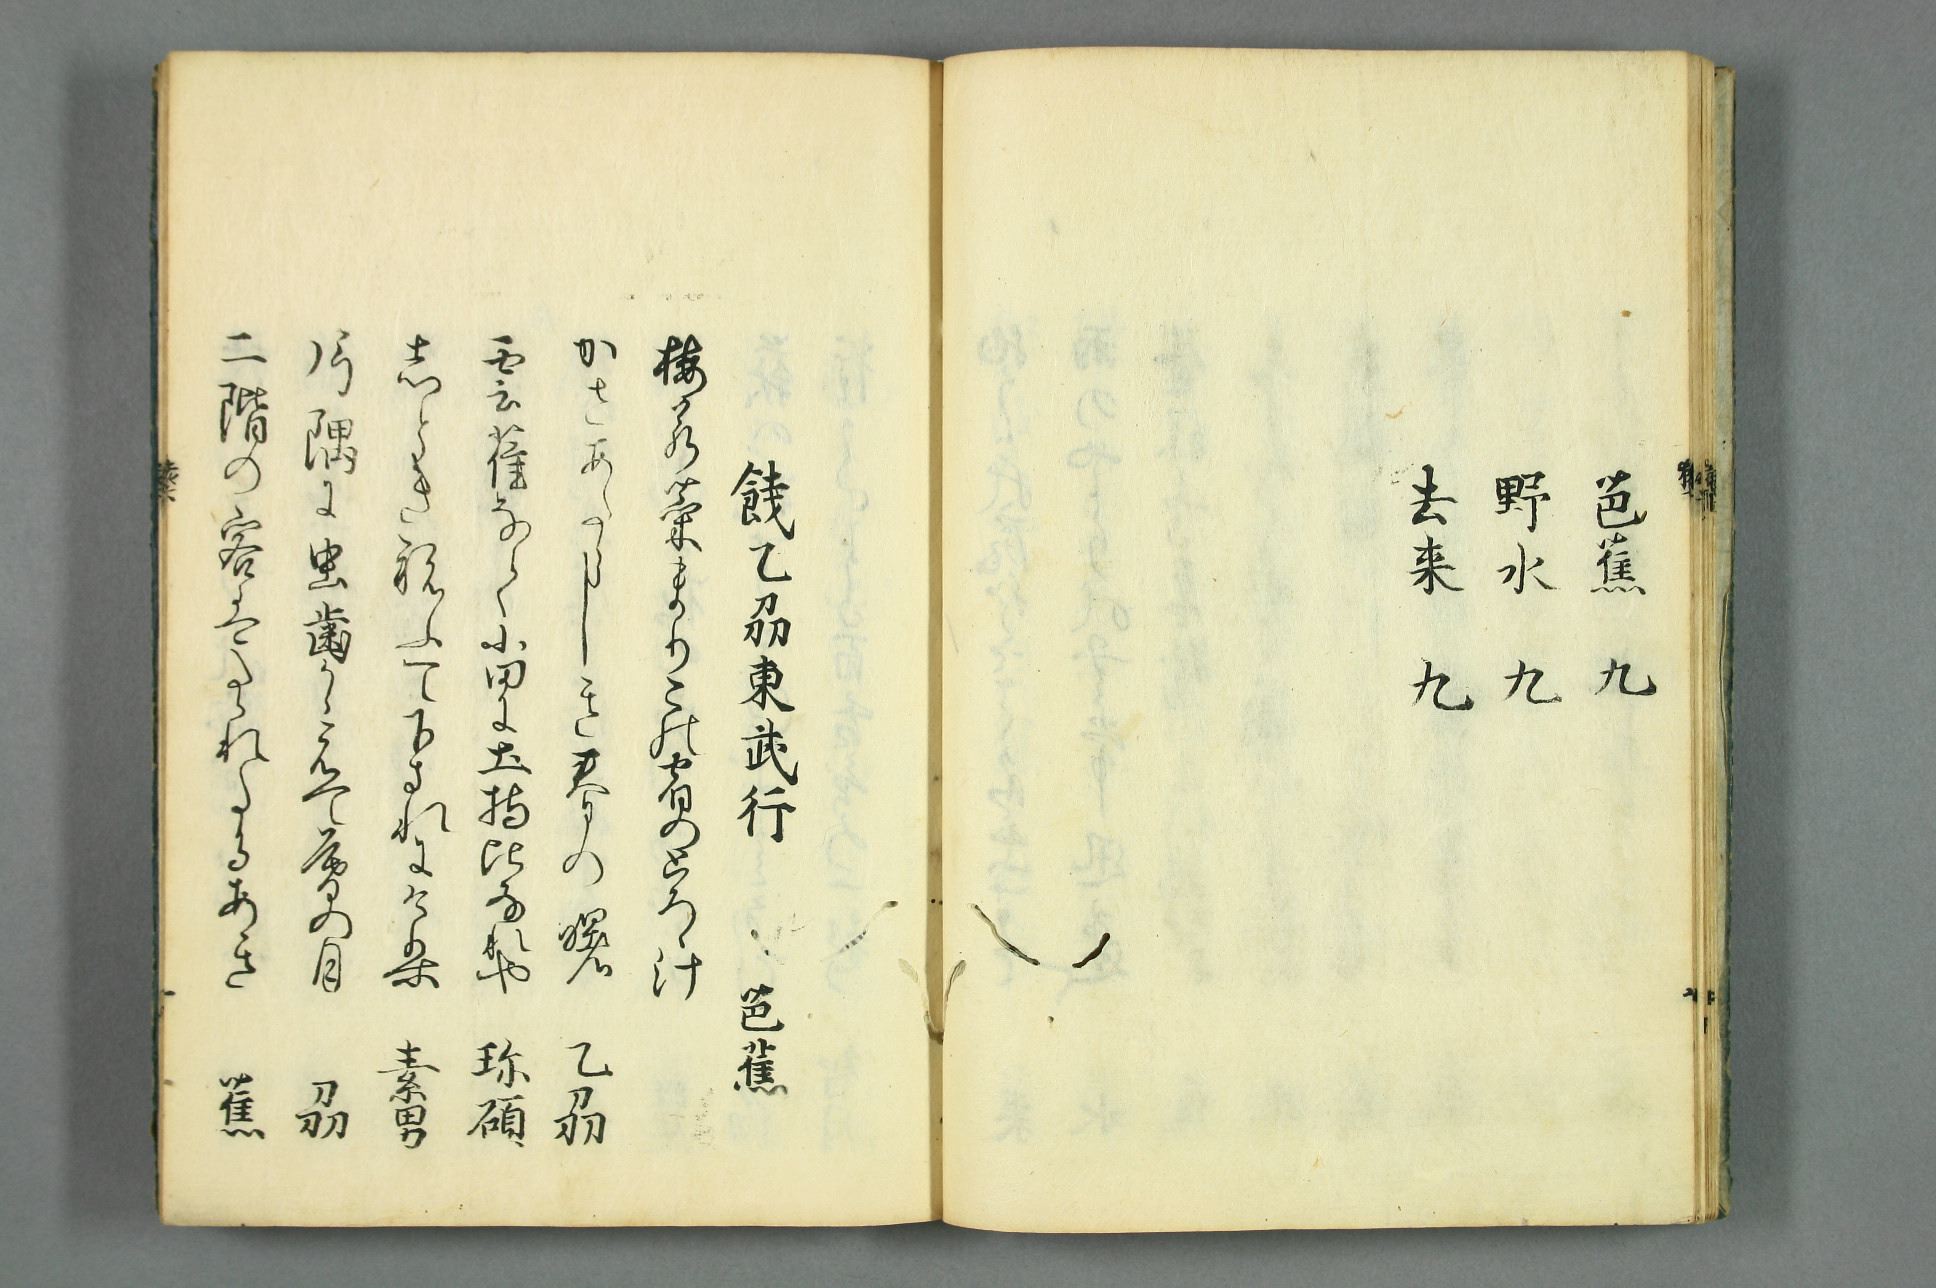 芭蕉 九
野水 九
去来 九
餞乙刕東武行 芭蕉
梅若菜まりこの宿のとろゝ汁
かさあたらしき春の曙 乙刕
雲雀なく小田に土持比なれや 珎碩
しとき祝ふて下されにけり 素男
片隅に虫歯かゝえて暮の月 刕
二階の客はたゝれたるあき 蕉